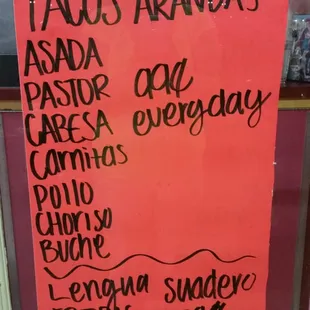 TACOS ARANDAS
ASADA
PASTOR 99¢
CABESA everyday
Carnitas
pollo
CHORISO
BUCHE
Lengua suadero